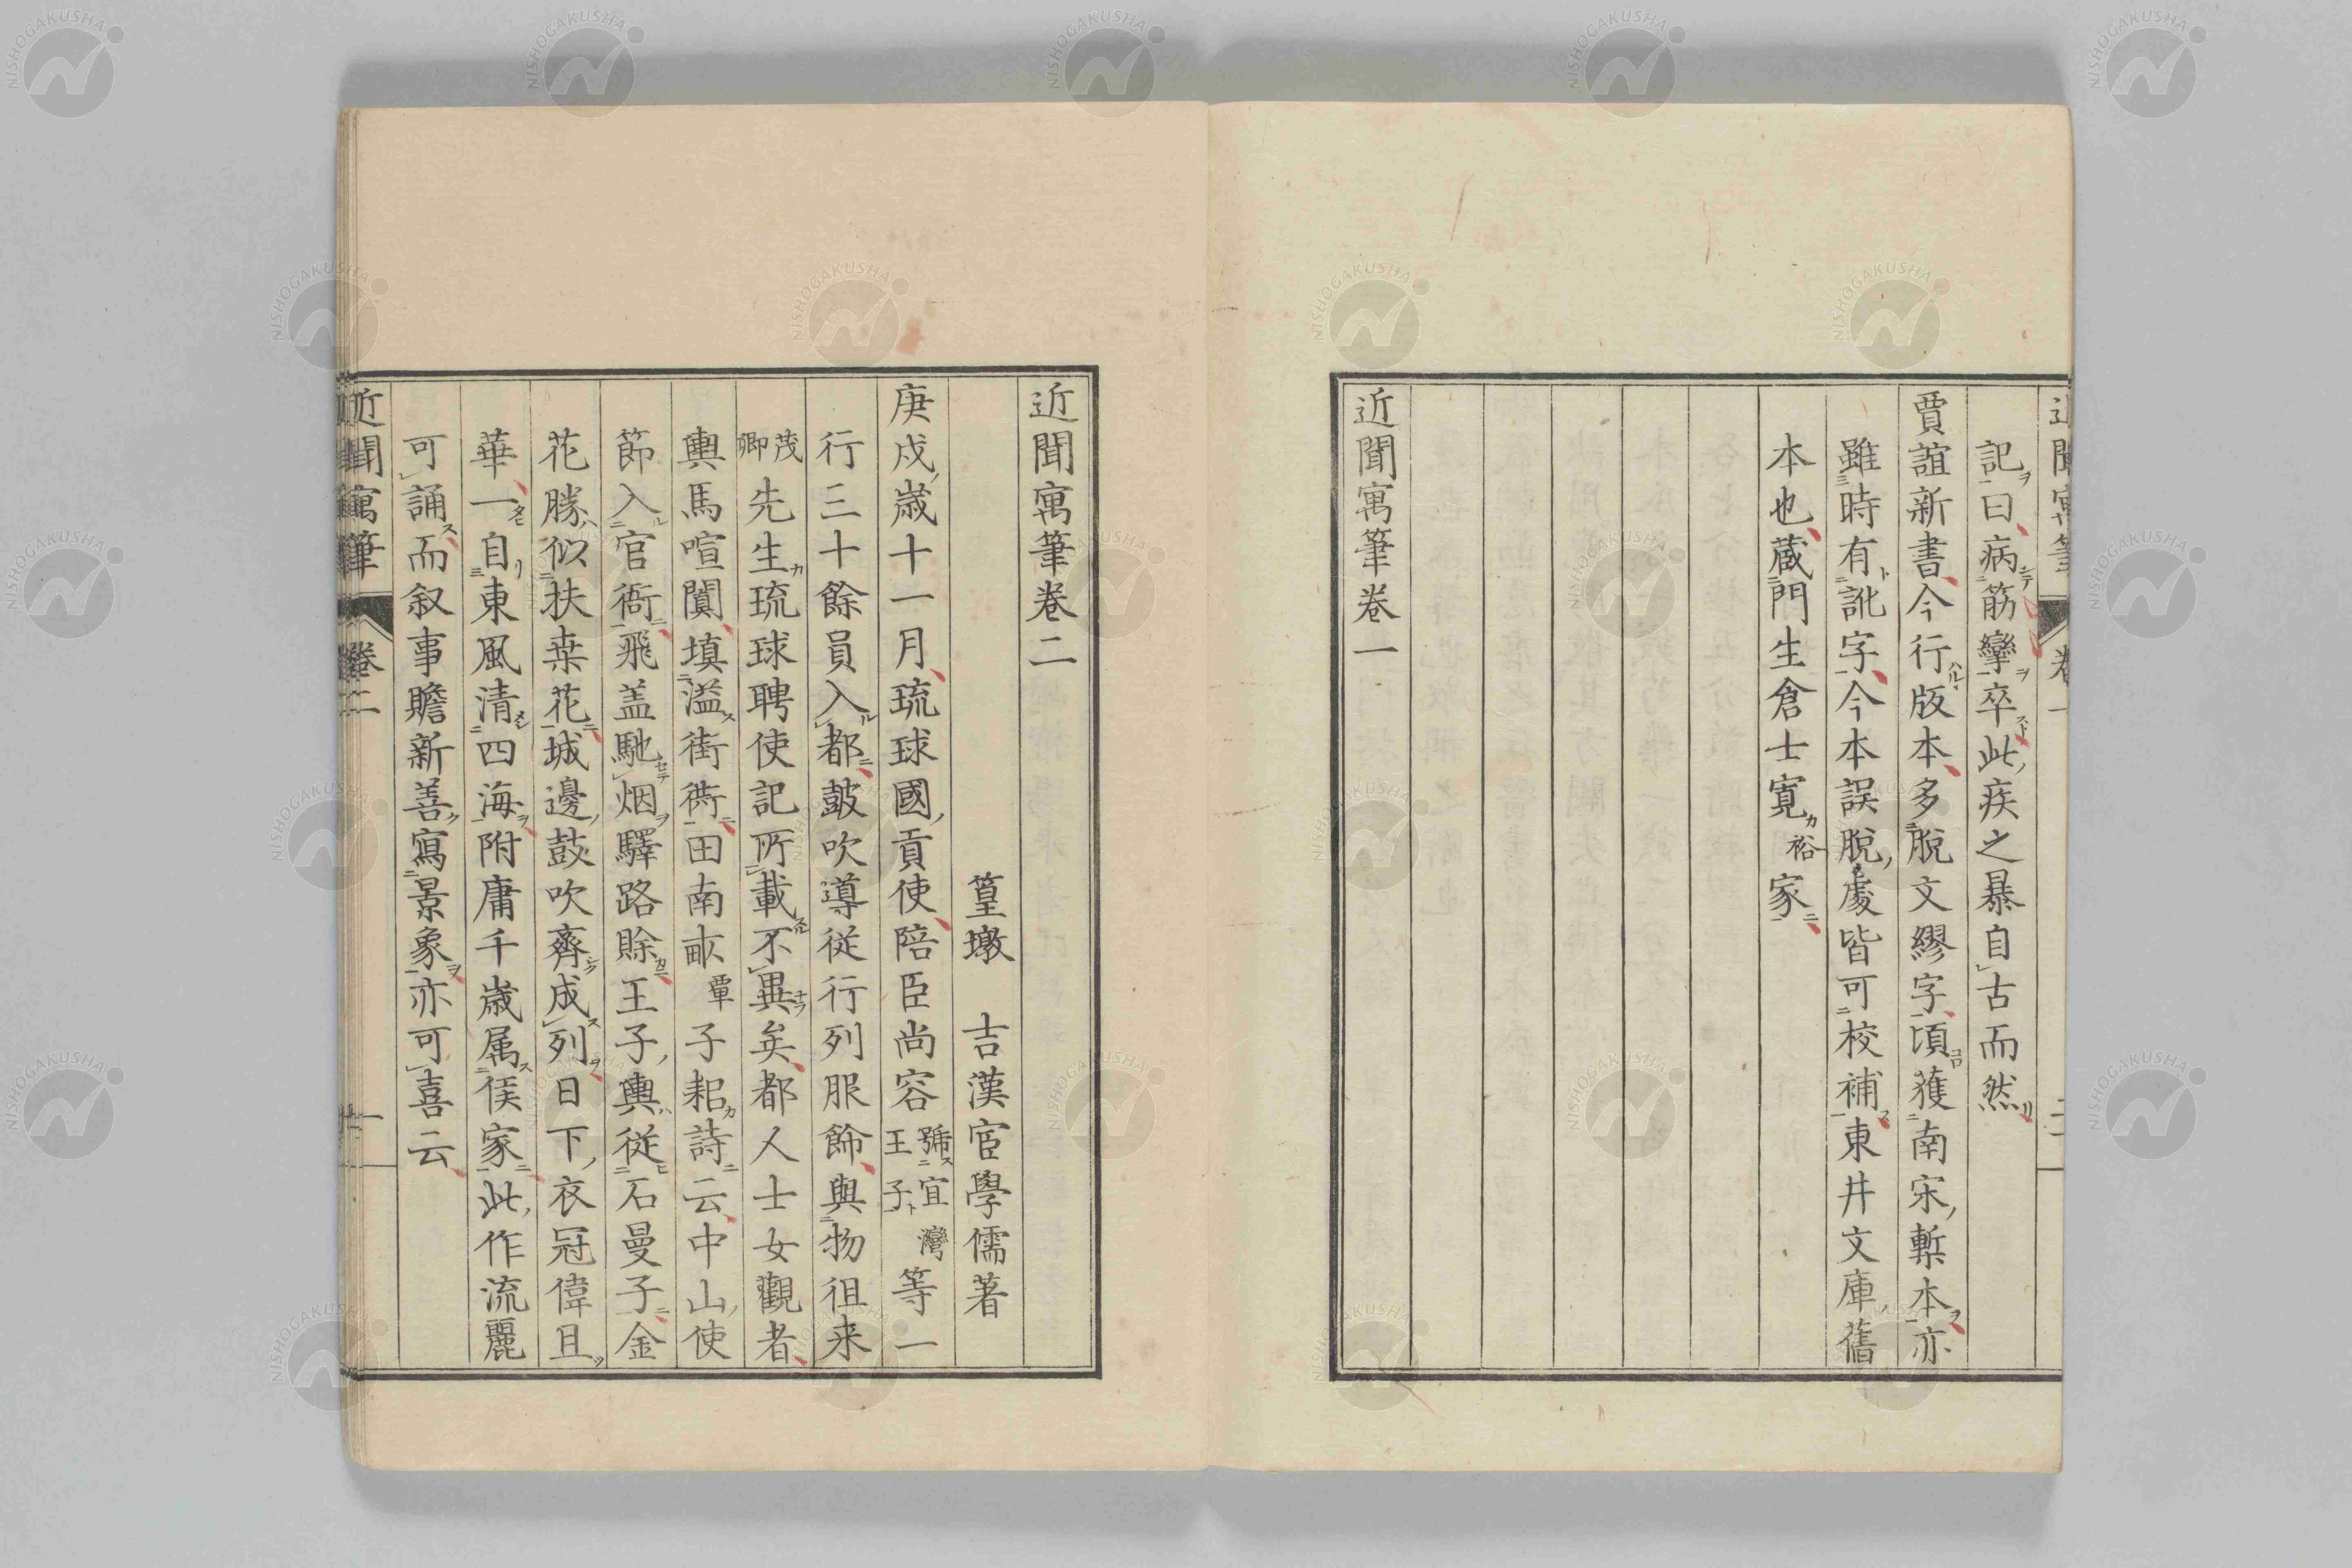 近聞寓筆 卷一
記曰病筋攣卒此疾之暴自古而然
賈誼新書今行版本多脫文繆字頃獲南宋槧本亦
雖時有訛字今本誤脫處皆可校補東井文庫舊
本也蔵門生倉士寛裕家
近聞寓筆卷一
近聞寓筆卷二
篁墩 吉漢宦學儒著
庚戌歳十一月琉球國貢使陪臣尚容號宜灣王子等一
行三十餘員入都鼓吹導從行列服飾與物徂来
茂卿先生琉球聘使記所載不異矣都人士女觀者
輿馬喧闐填溢街衖田南畝覃子耜詩云中山使
節入官衙飛盖馳烟驛路賒王子輿從石曼子金
花勝似扶桒花城邊鼓吹齊成列日下衣冠偉且
華一自東風清四海附庸千歳属侯家此作流麗
可誦而叙事贍新善寫景象亦可喜云
近聞寓筆 卷二 一
NISHOGAKUSHA